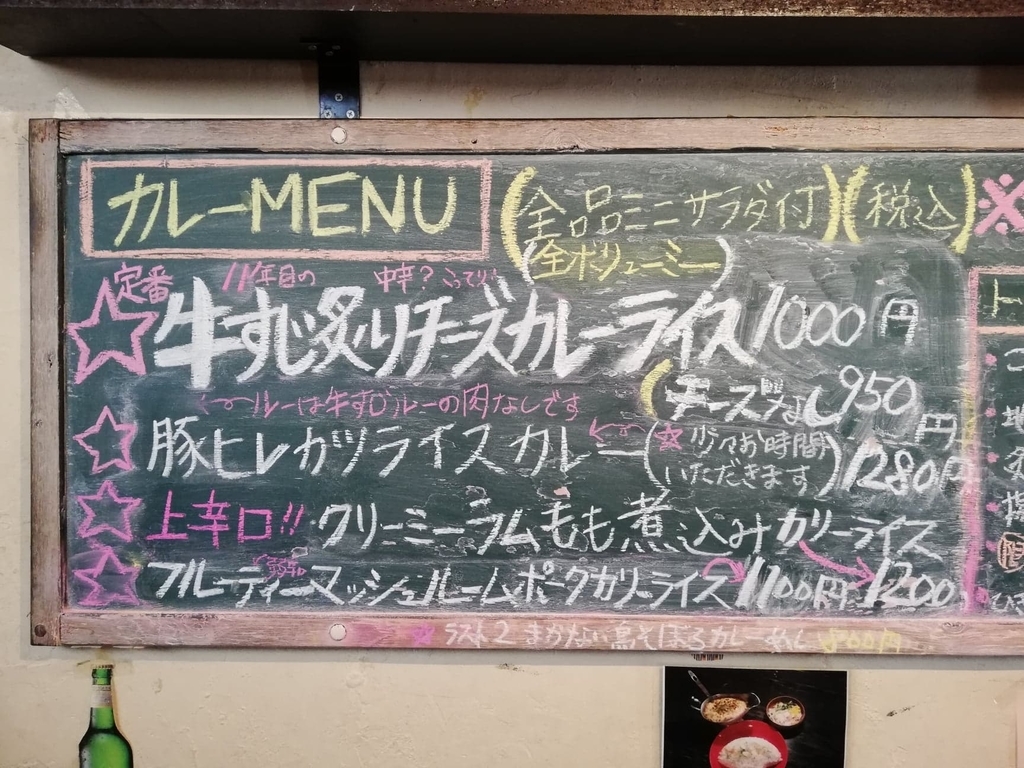 カレーMENU (全品ミニサラダ付)(税込)※
(全ボリューミー)
定番 11年目の 中辛?こってり
☆牛すじ炙りチーズカレーライス1000円
(チーズなし950円
ルーは牛すじルーの肉なしです
☆豚ヒレカツライスカレー(☆少々お時間いただきます)1280円
☆上辛口!!クリーミーラムもも煮込みカリーライス1200
☆フルーティーマッシュルームポークカリーライス1100円
ラスト2 まかない鳥そぼろカレーめし 800円
ト